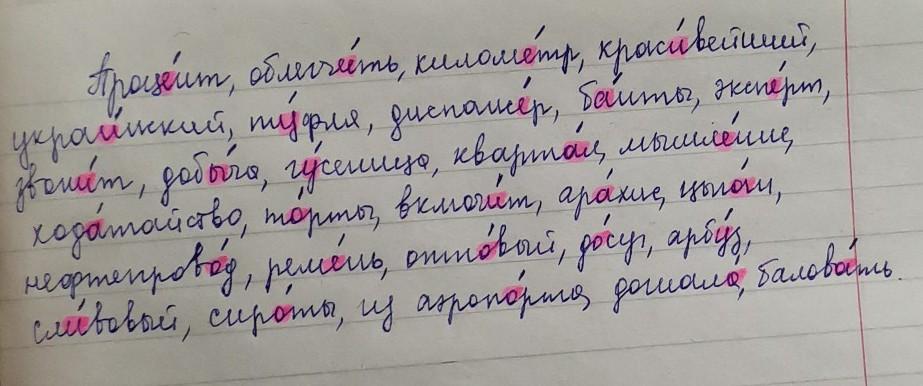 Проце́нт, облегчи́ть, киломе́тр, краси́вейший,
украи́нский, ту́фля, диспансе́р, ба́нты, экспе́рт,
звони́т, добы́ча, гу́сеница, кварта́л, мышле́ние,
хода́тайство, то́рты, включи́т, ара́хис, цыга́н,
нефтепрово́д, реме́нь, опто́вый, досу́г, арбу́з,
сли́вовый, сиро́ты, из аэропо́рта, балова́ть.